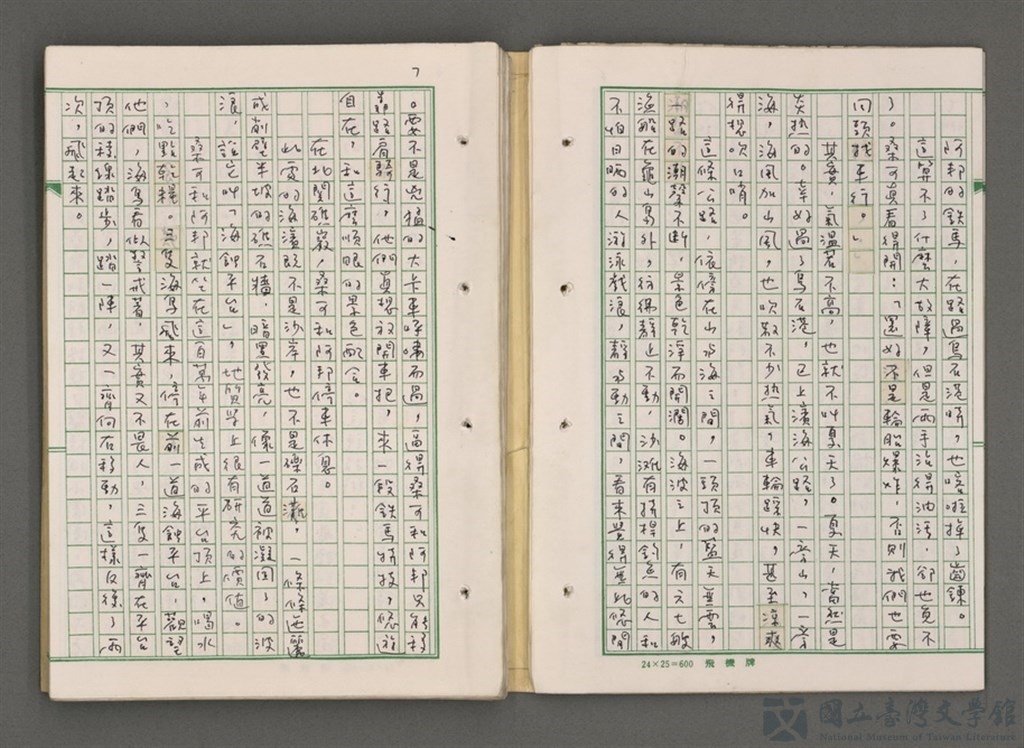 阿邦的鉄馬，在路過烏石港時，也喀啦掉了齒鍊。
這算不了什麼大故障，但是兩手沾得油污，卻也免不
了。桑可真看得開：「還好不是輪胎爆炸，否則我們也要
回頭找車行。」
其實，氣溫若不高，也就不叫夏天了。夏天，當然是
炎热的。幸好過了烏石港，已上濱海公路，一旁山，一旁
海，海風加山風，也吹散不少热氣，車輪踩快，甚至涼爽
得想吹口哨。
這條公路，依傍在山与海之間，一頭頂的藍天無雲，
一路的潮聲不斷，景色乾淨而開濶。海波之上，有六七艘
漁船在龜山島外，彷彿靜止不動，沙灘有持桿釣魚的人和
不怕日晒的人游泳戲浪，靜与動之間，看來覺得無比悠閒
24×25=600 飛機牌
7
。要不是兇猛的大卡車呼嘯而過，逼得桑可和阿邦只能移
靠路肩騎行，他們真想放開車把，來一段鉄馬特技，悠遊
自在，和這麼順眼的景色配合。
在北關礁巖，桑可和阿邦停車休息。
此處的海濱既不是沙岸，也不是礫石灘，一條條迤邐
成削壁半坡的礁石牆，暗黑發亮，像一道道被凝固了的波
浪，說它叫「海蝕平台」，地質学上很有研究的價值。
桑可和阿邦就坐在這百萬年前生成的平台頂上，喝水
，吃點乾糧。三隻海鳥飛來，停在前一道海蝕平台，觀望
他們，海鳥看似警戒着，其實又不畏人，三隻一齊在平台
頂的稜線踏步，踏一陣，又一齊向右移動，這樣反復了兩
次，飛起來。
國立臺灣文學館
National Museum of Taiwan Literature